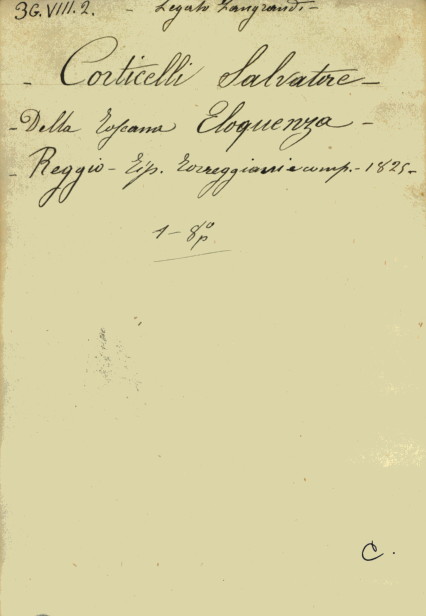 3G.VIII.2. - Legato Zangrandi -
- Corticelli Salvatore -
- Della Toscana Eloquenza -
- Reggio - Tip. Torreggiani e comp. - 1825 -
1 - 8º p
C.